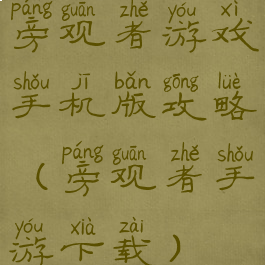 páng guān zhě yóu xì
旁观者游戏
shǒu jī bǎn gōng lüè
手机版攻略
páng guān zhě shǒu
(旁观者手
yóu xià zài
游下载)